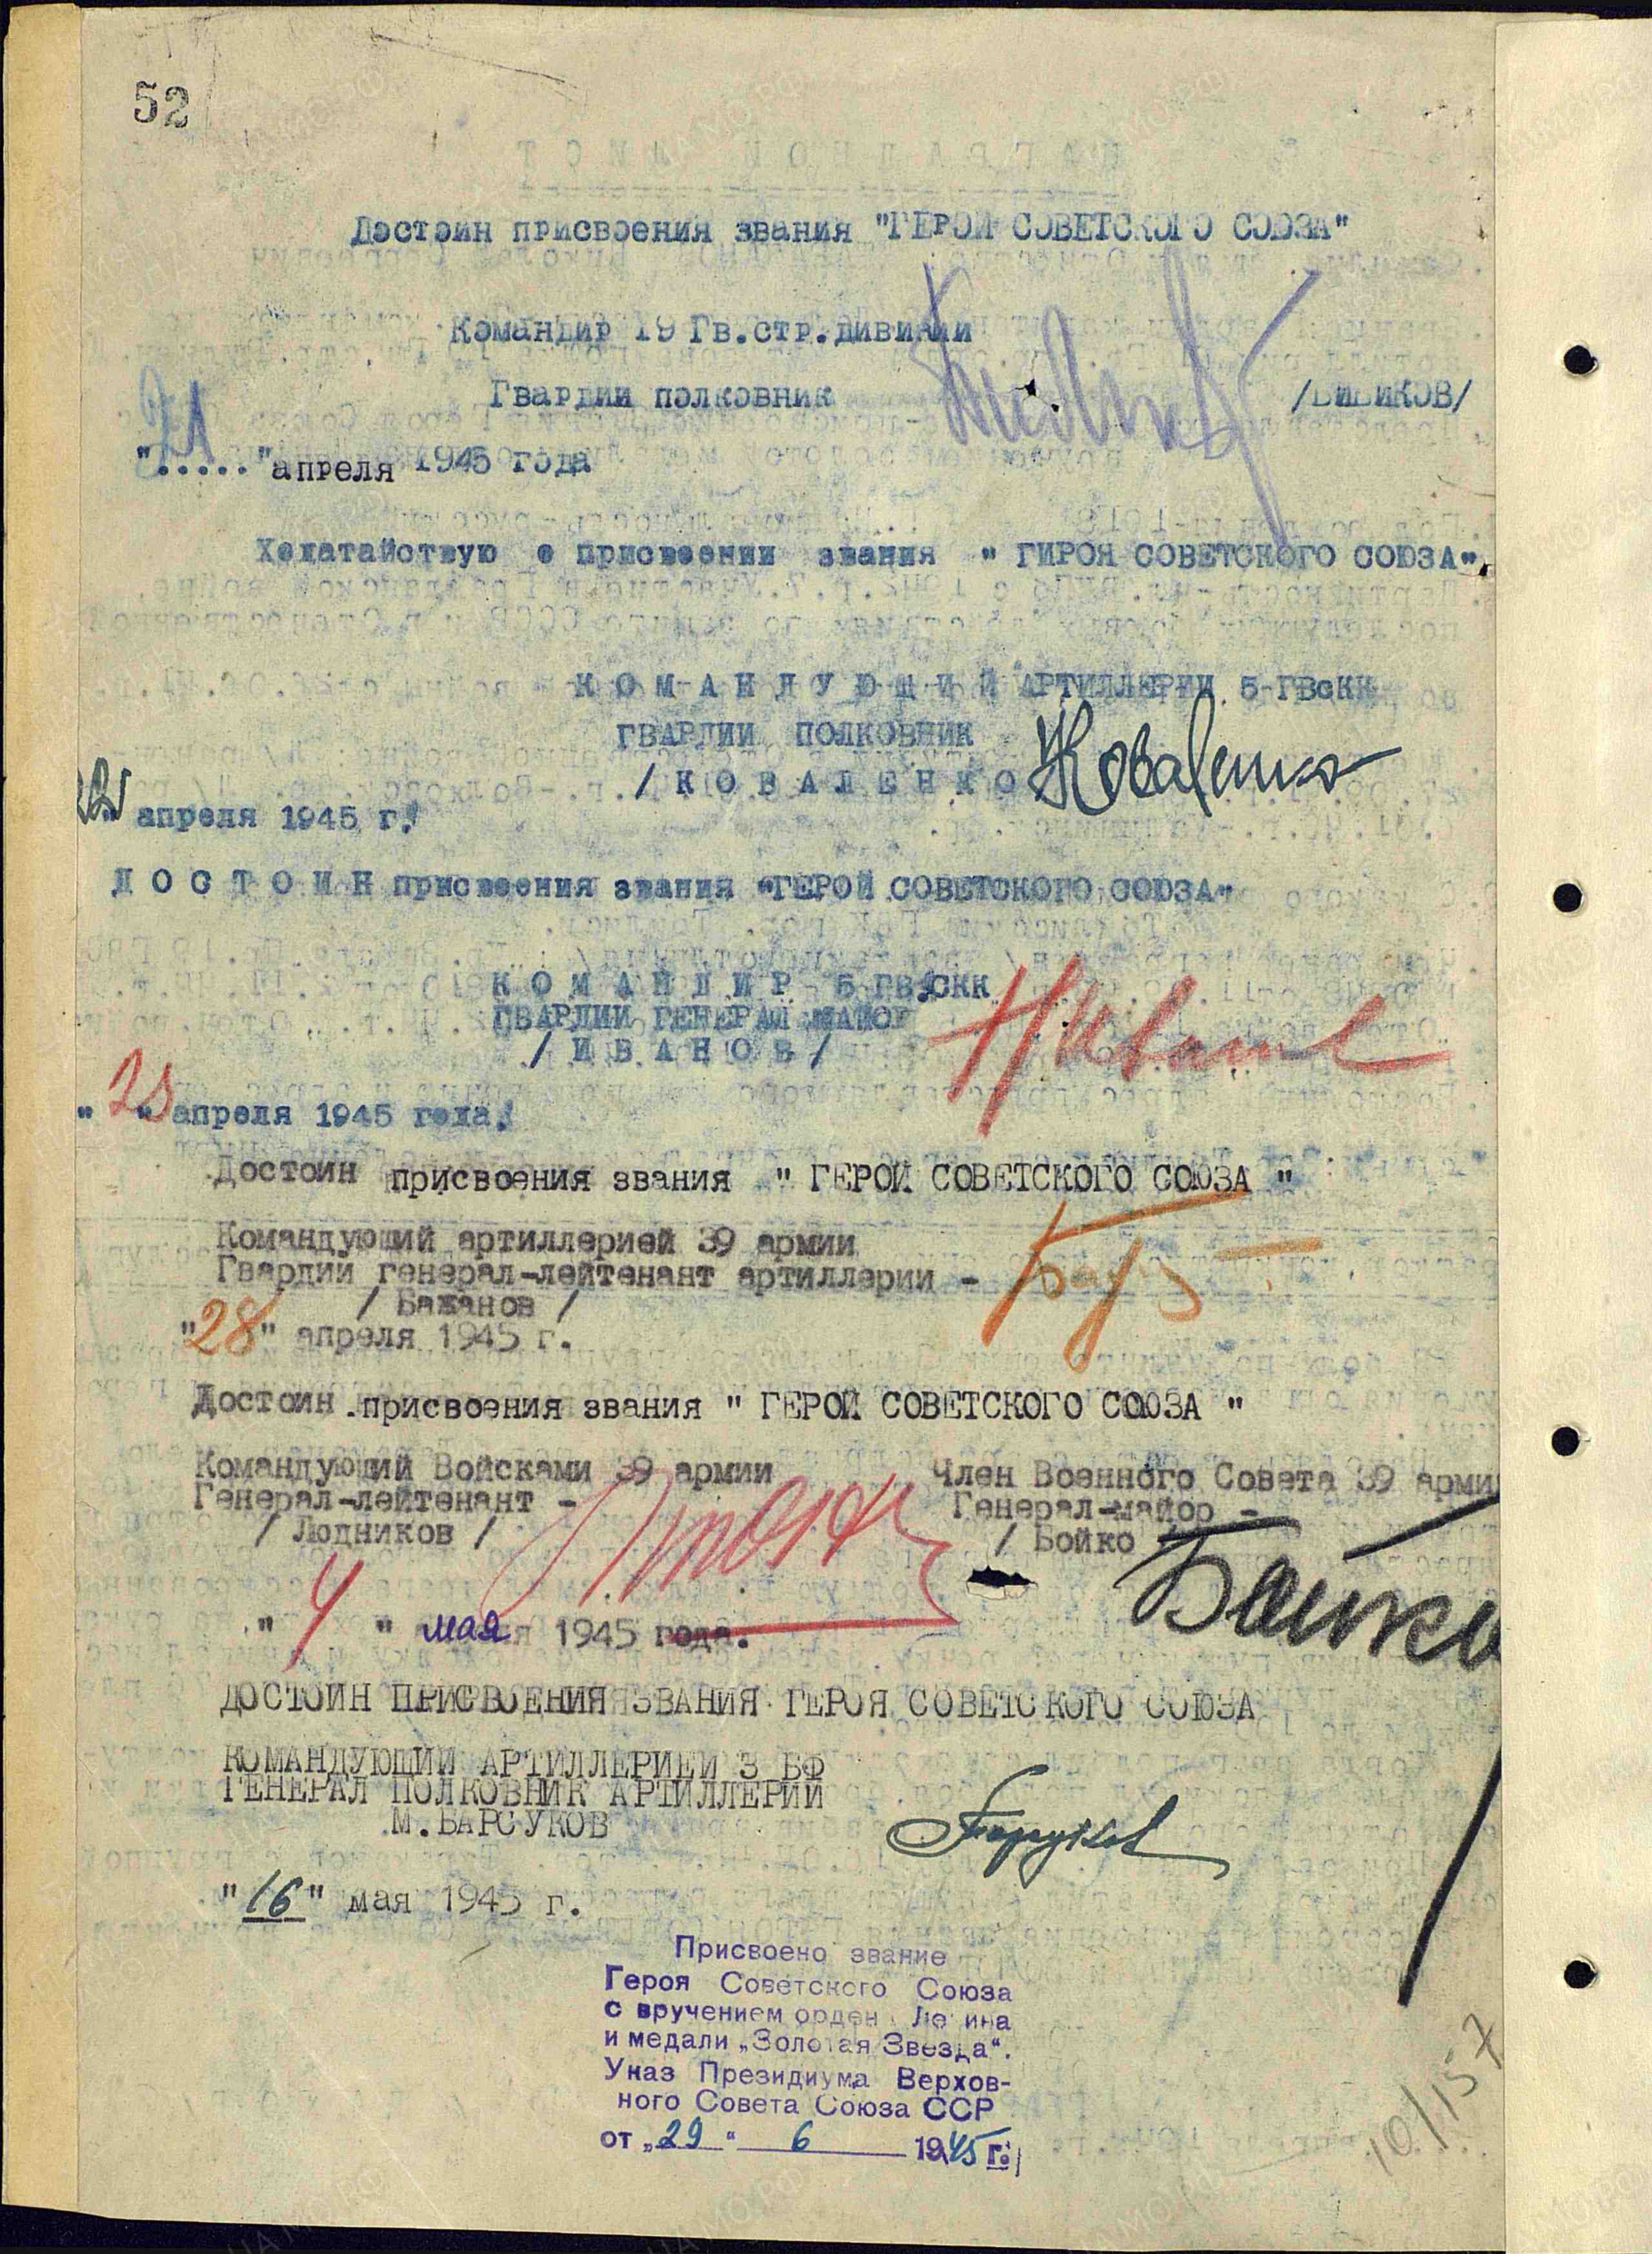 52
Достоин присвоения звания "ГЕРОЙ СОВЕТСКОГО СОЮЗА"
Командир 19 Гв.стр.дивизии
Гвардии полковник /БИБИКОВ/
"....." апреля 1945 года
Ходатайствую о присвоении звания " ГИРОЯ СОВЕТСКОГО СОЮЗА".
К О М А Н Д У Ю Щ И Й АРТИЛЛЕРИИ 5 ГВСКК
ГВАРДИИ ПОЛКОВНИК
/ К О В А Л Е Н К О Коваленко
апреля 1945 г.
Д О С Т О И Н присвоения звания "ГЕРОЙ СОВЕТСКОГО СОЮЗА"
К О М А Н Д И Р 5 ГВ.СКК
ГВАРДИИ ГЕНЕРАЛ МАЙОР
/ И В А Н О В /
" " апреля 1945 года.
Достоин присвоения звания " ГЕРОЙ СОВЕТСКОГО СОЮЗА "
Командующий артиллерией 39 армии
Гвардии генерал-лейтенант артиллерии -
/ Бажанов /
"28" апреля 1945 г.
Достоин присвоения звания " ГЕРОЙ СОВЕТСКОГО СОЮЗА "
Командующий Войсками 39 армии
Генерал-лейтенант -
/ Людников /
Член Военного Совета 39 арми
Генерал-майор -
/ Бойко /
Бойко
" 4 " мая 1945 года.
ДОСТОИН ПРИСВОЕНИЯ ЗВАНИЯ ГЕРОЯ СОВЕТСКОГО СОЮЗА
КОМАНДУЮЩИЙ АРТИЛЛЕРИЕЙ 3 БФ
ГЕНЕРАЛ ПОЛКОВНИК АРТИЛЛЕРИИ
М.БАРСУКОВ
"16" мая 1945 г.
Присвоено звание
Героя Советского Союза
с вручением орден Ленина
и медали „Золотая Звезда".
Указ Президиума Верхов-
ного Совета Союза ССР
от „29" 6 1945 г.
10/157